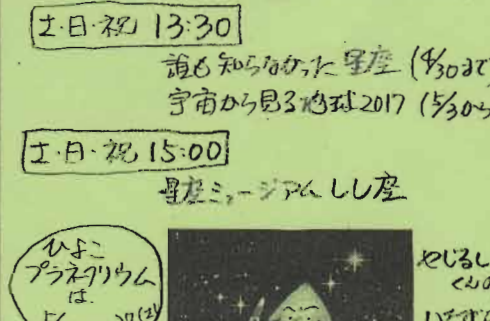 土・日・祝 13:30
誰も知らなかった星座 (4/30まで
宇宙から見る地球2017 (5/3から
土・日・祝 15:00
星座ミュージアム しし座
ひよこ
プラネタリウム
は
やじるし
くんの